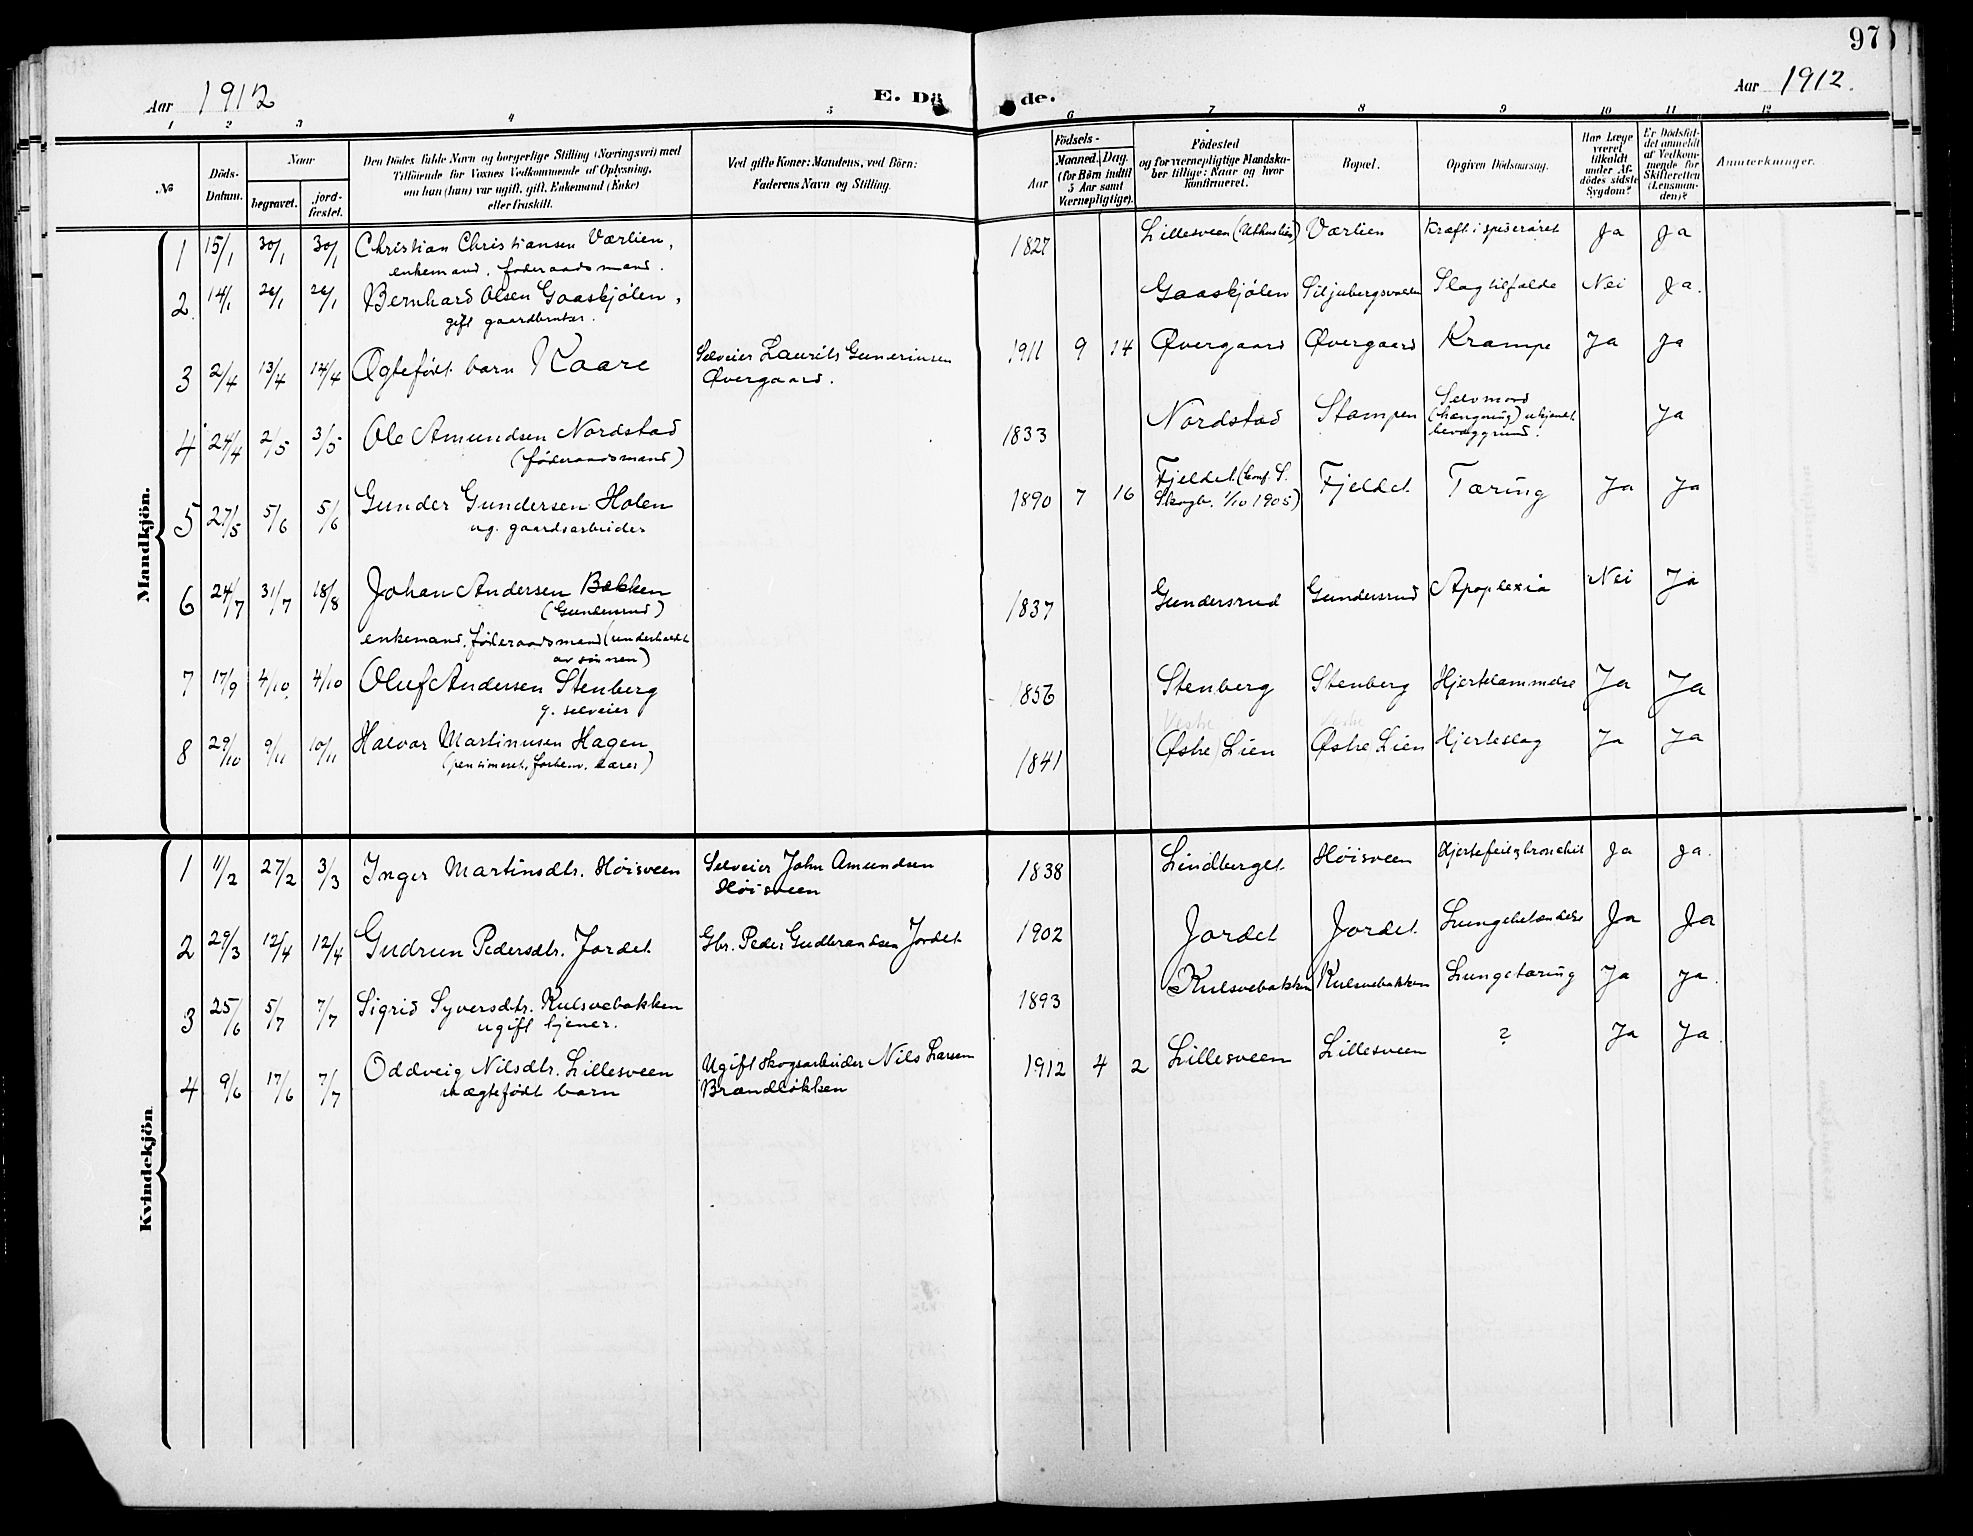 97
Aar 1912 E. Dö de. Aar 1912.
1 2 3 4 5 6 7 8 9 10 11 12
№ Döds-Datum. Naar begravet. jord-fæstet. Den Dödes fulde Navn og borgerlige Stilling (Næringsvei) med Tilföiende for Voxnes Vedkommende af Oplysning, om han (hun) var ugift, gift, Enkemand (Enke) eller fraskilt. Ved gifte Koner: Mandens, ved Börn: Faderens Navn og Stilling. Födsels- Aar Maaned. Dag. (for Börn indtil 5 Aar samt Værnepligtige). Födested og for værnepligtige Mandskaber tillige: Naar og hvor konfirmeret. Bopæl. Opgiven Dödsaarsag. Har Læge været tilkaldt under Afdödes sidste Sygdom? Er Dödsfaldet anmeldt af Vedkommende for Skifteretten (Lensmanden)? Anmerkninger.
Mandkjön.
1 15/1 30/1 30/1 Christian Christiansen Værlien, 1827 Lillesveen (Uthuslien) Værlien Kræft i spiserøret Ja Ja
enkemand, føderaadsmand.
2. 14/1 26/1 26/1 Bernhard Olsen Gaaskjølen, Gaaskjølen Siljubergsvollen Slagtilfælde Nei Ja.
gift gaardbruker.
3 2/4 13/4 14/4 Ægtefødt barn Kaare Selveier Laurits Gunerinsen 1911 9 14 Øvergaard Øvergaard Krampe Ja Ja
Øvergaard.
4 24/4 2/5 3/5 Ole Amundsen Nordstad 1833 Nordstad Stampen Selvmord (hængning) ukjendt bevæggrund. Ja
(føderaadsmand)
5 27/5 5/6 5/6 Gunder Gundersen Holen 1890 7 16 Fjeldet (konf. S. Skogb. 1/10 1905) Fjeldet Tæring Ja Ja
ug. gaardsarbeider
6 24/7 31/7 18/8 Johan Andersen Bakken 1837 Gundersrud Gundersrud Apoplexia Nei Ja
(Gundersrud)
enkemand, føderaadsmand (underholdt
av sønnen)
7 17/9 4/10 4/10 Oluf Andersen Stenberg 1856 Stenberg Stenberg Hjertelammelse Ja Ja
g. selveier
8 29/10 9/11 10/11 Halvor Martinusen Hagen 1841 Østre Lien Østre Lien Hjerteslag Ja Ja
(pensioneret, forhenv. lærer)
Vestre Vestre
Kvindekjön
1 11/2 27/2 3/3 Inger Martinsdtr. Høisveen Selveier John Amundsen 1838 Lindberget Høisveen Hjertefeil og bronchit Ja Ja.
Høisveen
2 29/3 12/4 12/4 Gudrun Pedersdtr. Jordet Gbr. Peder Gudbrandsen Jordet 1902 Jordet Jordet Lungebetændelse Ja Ja
3 25/6 5/7 7/7 Sigrid Syversdtr. Kulsvebakken 1893 Kulsvebakken Kulsvebakken Lungetæring Ja Ja.
ugift tjener.
4 9/6 17/6 7/7 Oddveig Nilsdtr. Lillesveen Ugift skogsarbeider Nils Larsen 1912 4 2 Lillesveen Lillesveen ? Ja Ja
uægtefødt barn Brændløkken